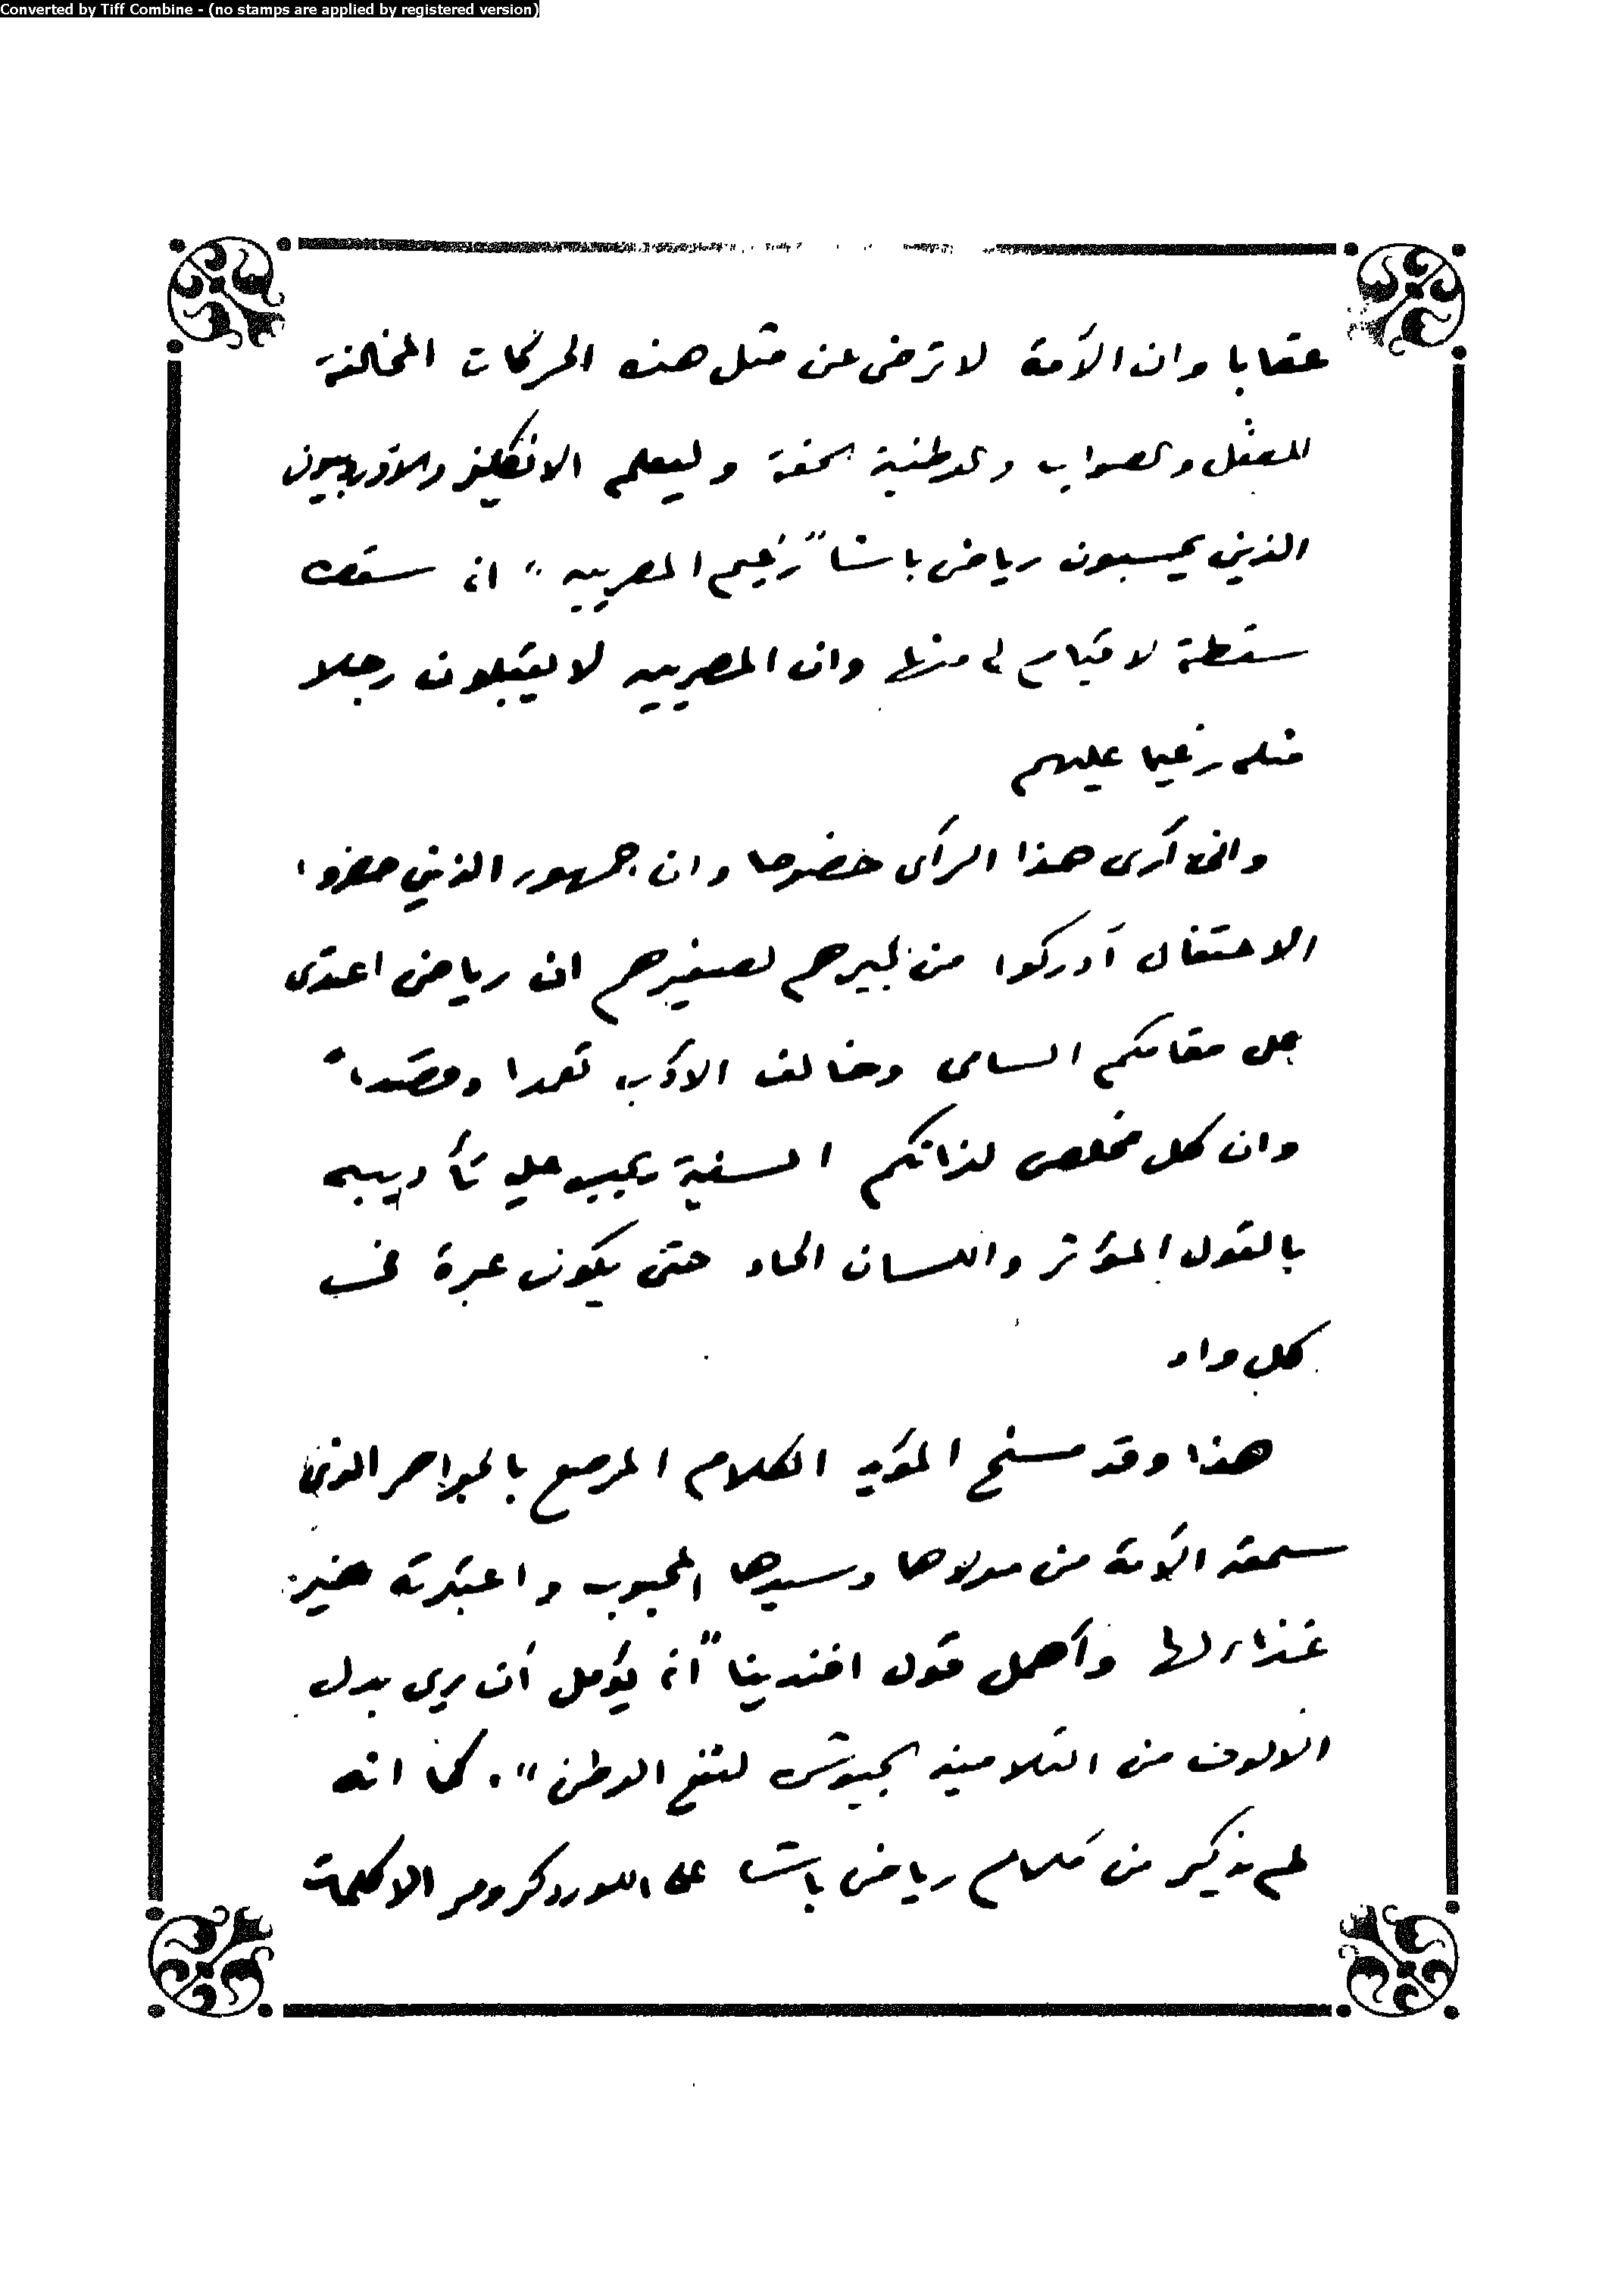 Converted by Tiff Combine - (no stamps are applied by registered version)
عقابا وان الأمة لا ترضى عن مثل هذه الحركات المخالفة
للعقل والصواب والوطنية الحقة وليعلم الانكليز والاوربيون
الذين يحسبون رياض باشا "زعيم المصريين" انه سقط
سقطة لا قيام له منها وان المصريين لا يقبلون رجلا
مثله زعيما عليهم
وانى أرى هذا الرأى خصوصا وان جمهور الذين حضروا
الاحتفال أدركوا من كبيرهم لصغيرهم ان رياض اعتدى
على مقامكم السامى وخالف الأدب تعمدا وقصداً
وان كل مخلص لذاتكم السنية يجب عليه تأديبه
بالقول المؤثر واللسان الحاد حتى يكون عبرة فى
كل واد
هذا وقد مسخ المؤيد الكلام المرصع بالجواهر الذى
سمعته الأمة من مولاها وسيدها المحبوب واعتبرته خير
غذاء لها وأهمل قول افندينا "انه يؤمل أن يرى بدل
الألوف من التلاميذ الجيوش لنفع الوطن". كما انه
لم يذكر من كلام رياض باشا على اللورد كرومر الا كلمات